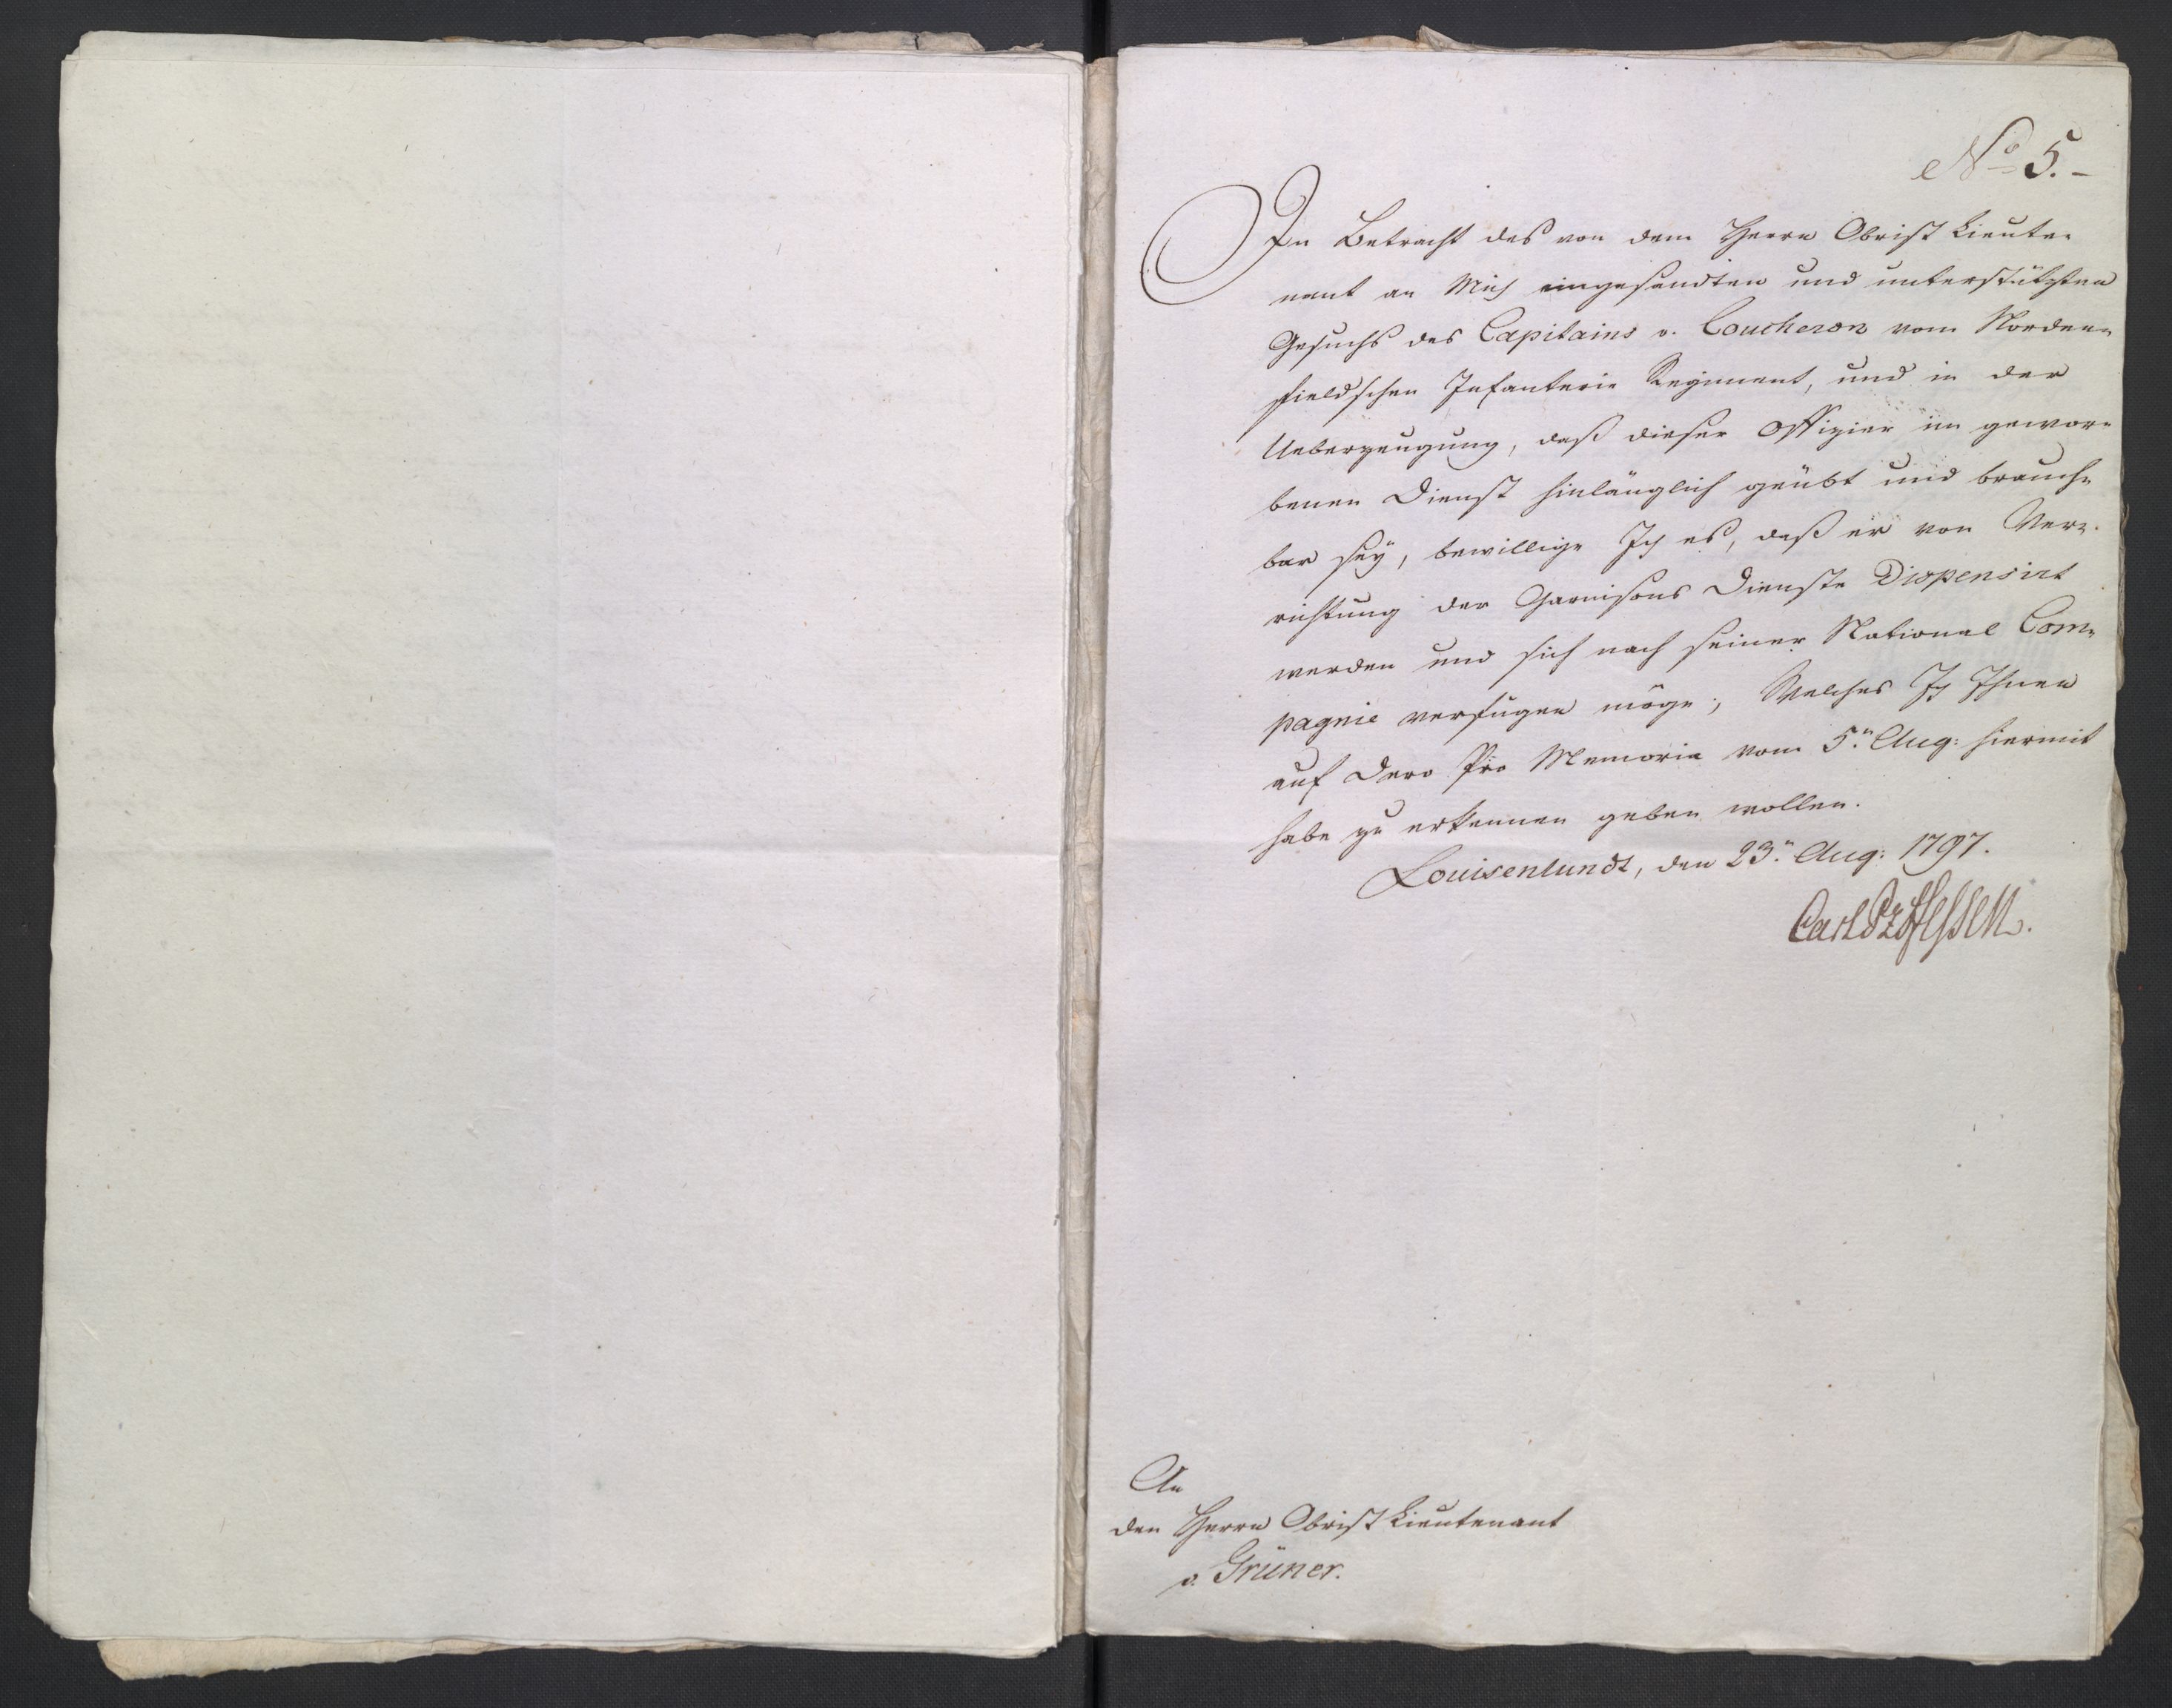 No 5.-
In Betracht des von dem Herrn Obrist Lieute-
nant an Mich eingesandten und unterstützten
Gesuchs des Capitains v. Coucheron vom Norden-
fieldschen Infanterie Regiment, und in der
Ueberzeugung, daß dieser Offizier im gewor-
benen Dienst hinlänglich geübt und brauch-
bar seÿ, bewillige Ich es, daß er von Ver-
richtung der Garnisons Dienste Dispensirt
werden und sich nach seiner National Com-
pagnie verfügen möge; Welches Ich Ihnen
auf Dero Pro Memoria vom 5ⁿ Aug: hiermit
habe zu erkennen geben wollen.
Louisenlundt, den 23ⁿ Aug: 1797.
Carl PzHessen.
An
den Herrn Obrist Lieutenant
v. Grüner.